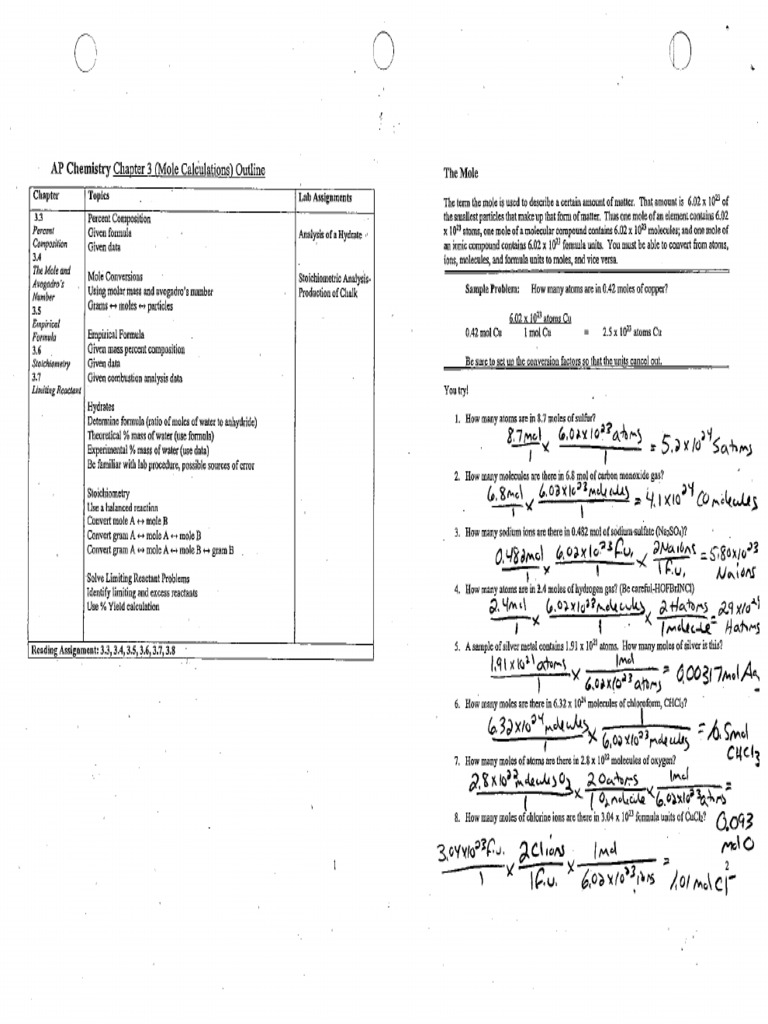 AP Chemistry Chapter 3 (Mole Calculations) Outline
Chapter Topics Lab Assignments
3.3 Percent Composition
Percent Given formula Analysis of a Hydrate
Composition Given data
3.4
The Mole and Mole Conversions Stoichiometric Analysis-
Avogadro's Using molar mass and avogadro's number Production of Chalk
Number Grams ↔ moles ↔ particles
3.5
Empirical Empirical Formula
Formula Given mass percent composition
3.6 Given data
Stoichiometry Given combustion analysis data
3.7
Limiting Reactant
Hydrates
Determine formula (ratio of moles of water to anhydride)
Theoretical % mass of water (use formula)
Experimental % mass of water (use data)
Be familiar with lab procedure, possible sources of error
Stoichiometry
Use a balanced reaction
Convert mole A ↔ mole B
Convert gram A ↔ mole A ↔ mole B
Convert gram A ↔ mole A ↔ mole B ↔ gram B
Solve Limiting Reactant Problems
Identify limiting and excess reactants
Use % Yield calculation
Reading Assignment: 3.3, 3.4, 3.5, 3.6, 3.7, 3.8
1
The Mole
The term the mole is used to describe a certain amount of matter. That amount is 6.02 x 10²³ of
the smallest particles that make up that form of matter. Thus one mole of an element contains 6.02
x 10²³ atoms, one mole of a molecular compound contains 6.02 x 10²³ molecules; and one mole of
an ionic compound contains 6.02 x 10²³ formula units. You must be able to convert from atoms,
ions, molecules, and formula units to moles, and vice versa.
Sample Problem: How many atoms are in 0.42 moles of copper?
6.02 x 10²³ atoms Cu
0.42 mol Cu 1 mol Cu = 2.5 x 10²³ atoms Cu
Be sure to set up the conversion factors so that the units cancel out.
You try!
1. How many atoms are in 8.7 moles of sulfur?
8.7mol/1 x 6.02x10²³ atoms/1 = 5.2x10²⁴ S atoms
2. How many molecules are there in 6.8 mol of carbon monoxide gas?
6.8mol/1 x 6.02x10²³ molecules/1 = 4.1x10²⁴ CO molecules
3. How many sodium ions are there in 0.482 mol of sodium sulfate (Na₂SO₄)?
0.482mol/1 x 6.02x10²³ f.u./1 x 2Na ions/1 f.u. = 5.80x10²³ Na ions
4. How many atoms are in 2.4 moles of hydrogen gas? (Be careful-HOFBrINCl)
2.4mol/1 x 6.02x10²³ molecules/1 x 2 H atoms/1 molecule = 2.9x10²⁴ H atoms
5. A sample of silver metal contains 1.91 x 10²¹ atoms. How many moles of silver is this?
1.91x10²¹ atoms/1 x 1mol/6.02x10²³ atoms = 0.00317mol Ag
6. How many moles are there in 6.32 x 10²⁴ molecules of chloroform, CHCl₃?
6.32x10²⁴ molecules/1 x 1/6.02x10²³ molecules = 10.5mol CHCl₃
7. How many moles of atoms are there in 2.8 x 10²² molecules of oxygen?
2.8x10²² molecules O₂/1 x 2 O atoms/1 O₂ molecule x 1mol/6.02x10²³ atoms = 0.093 mol O
8. How many moles of chlorine ions are there in 3.04 x 10²³ formula units of CuCl₂?
3.04x10²³ f.u./1 x 2Cl ions/1 f.u. x 1mol/6.02x10²³ ions = 1.01 mol Cl⁻
2